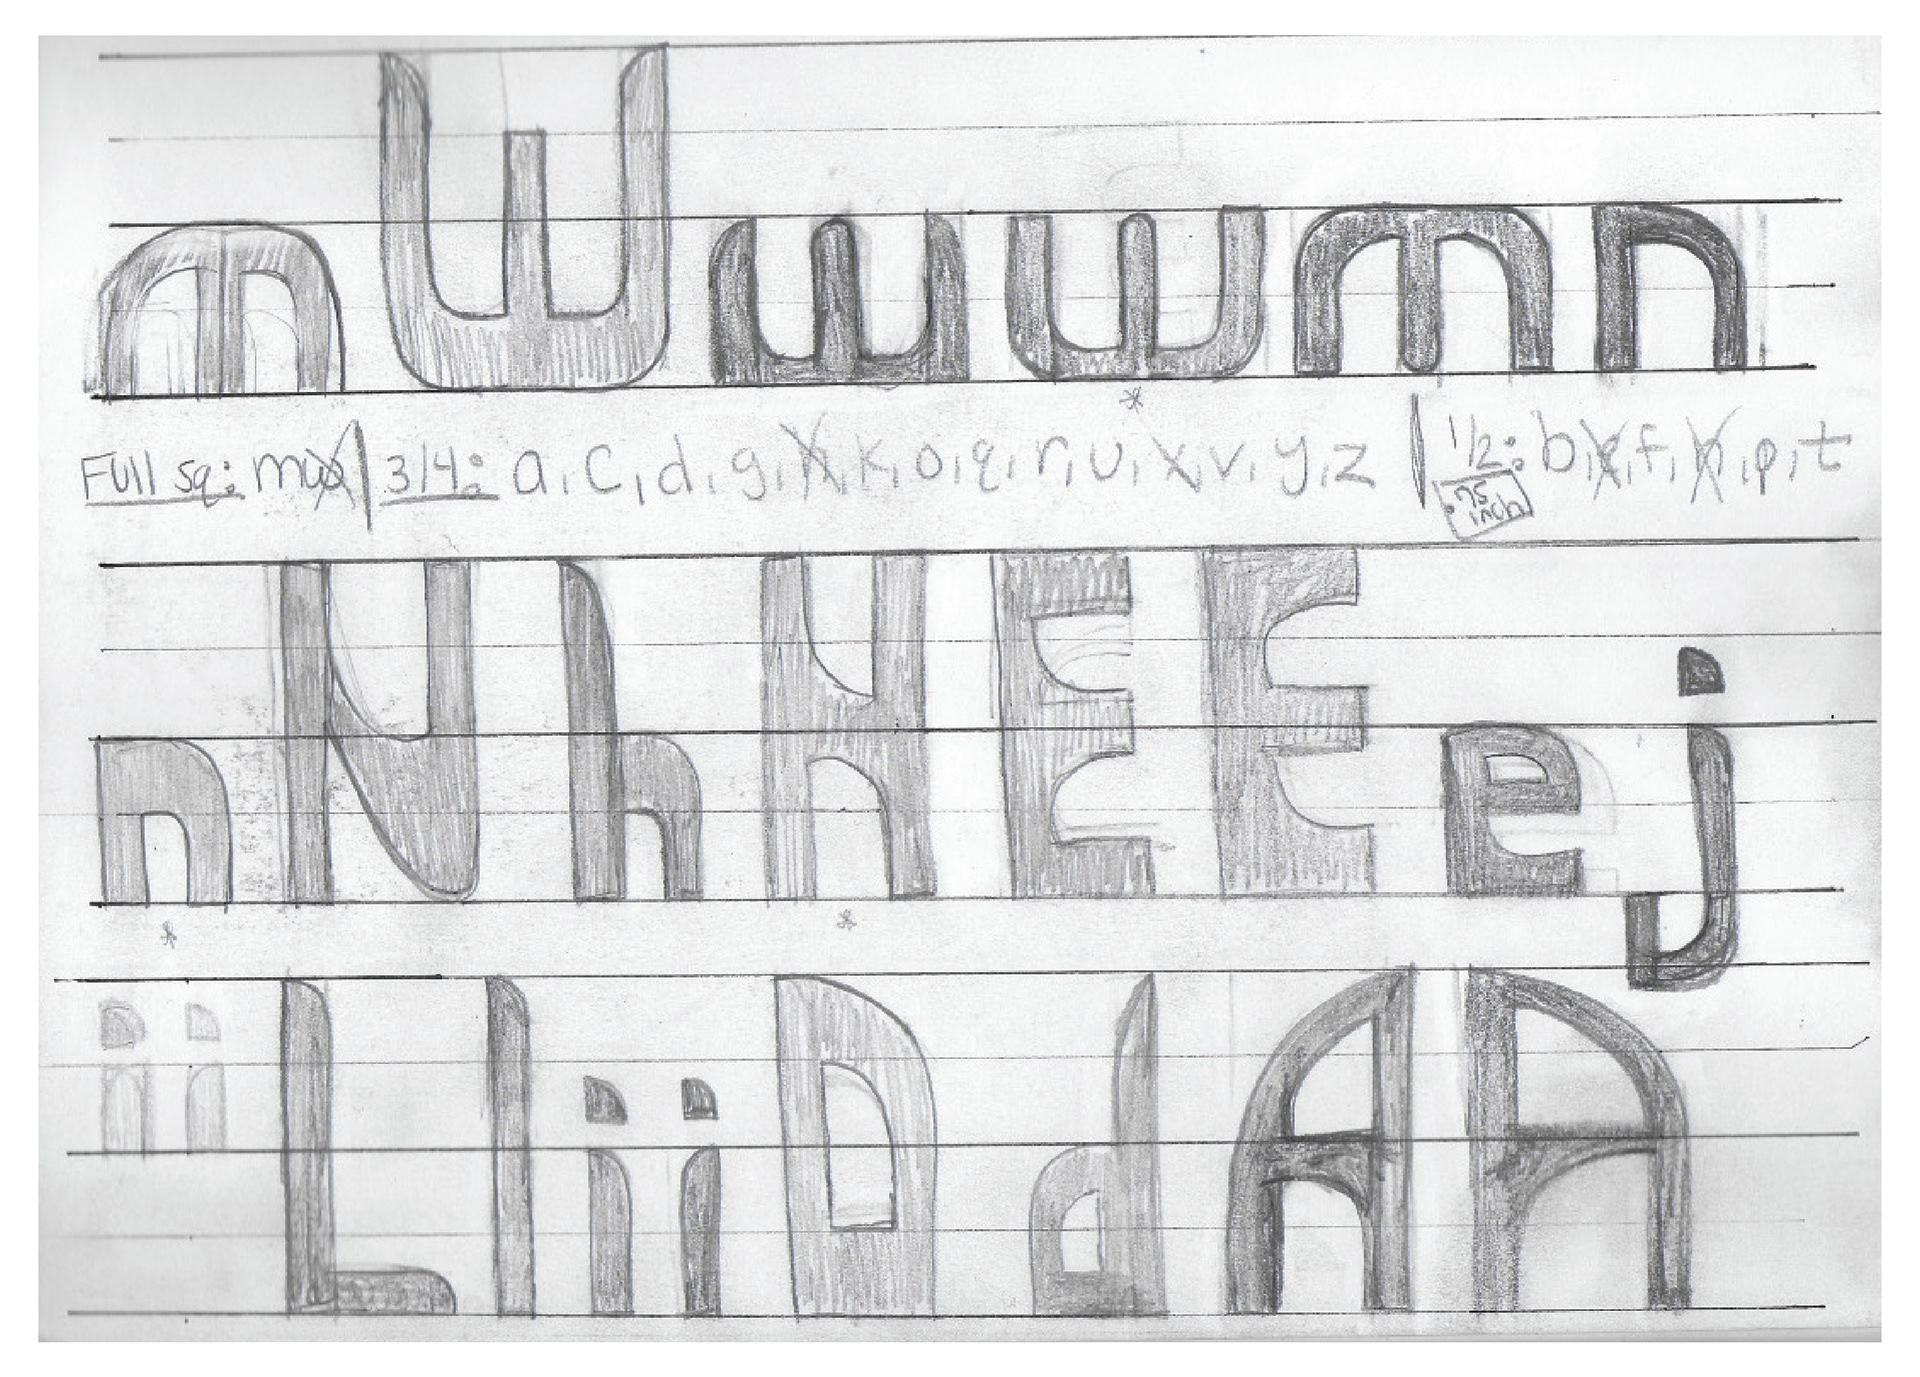 m W w w w m n
Full sq: m w | 3/4: a, c, d, g, h, k, o, q, r, u, x, v, y, z | 1/2: b, e, f, h, p, t
.75 inch
n N h H E E e j
i i L l i i D d A A